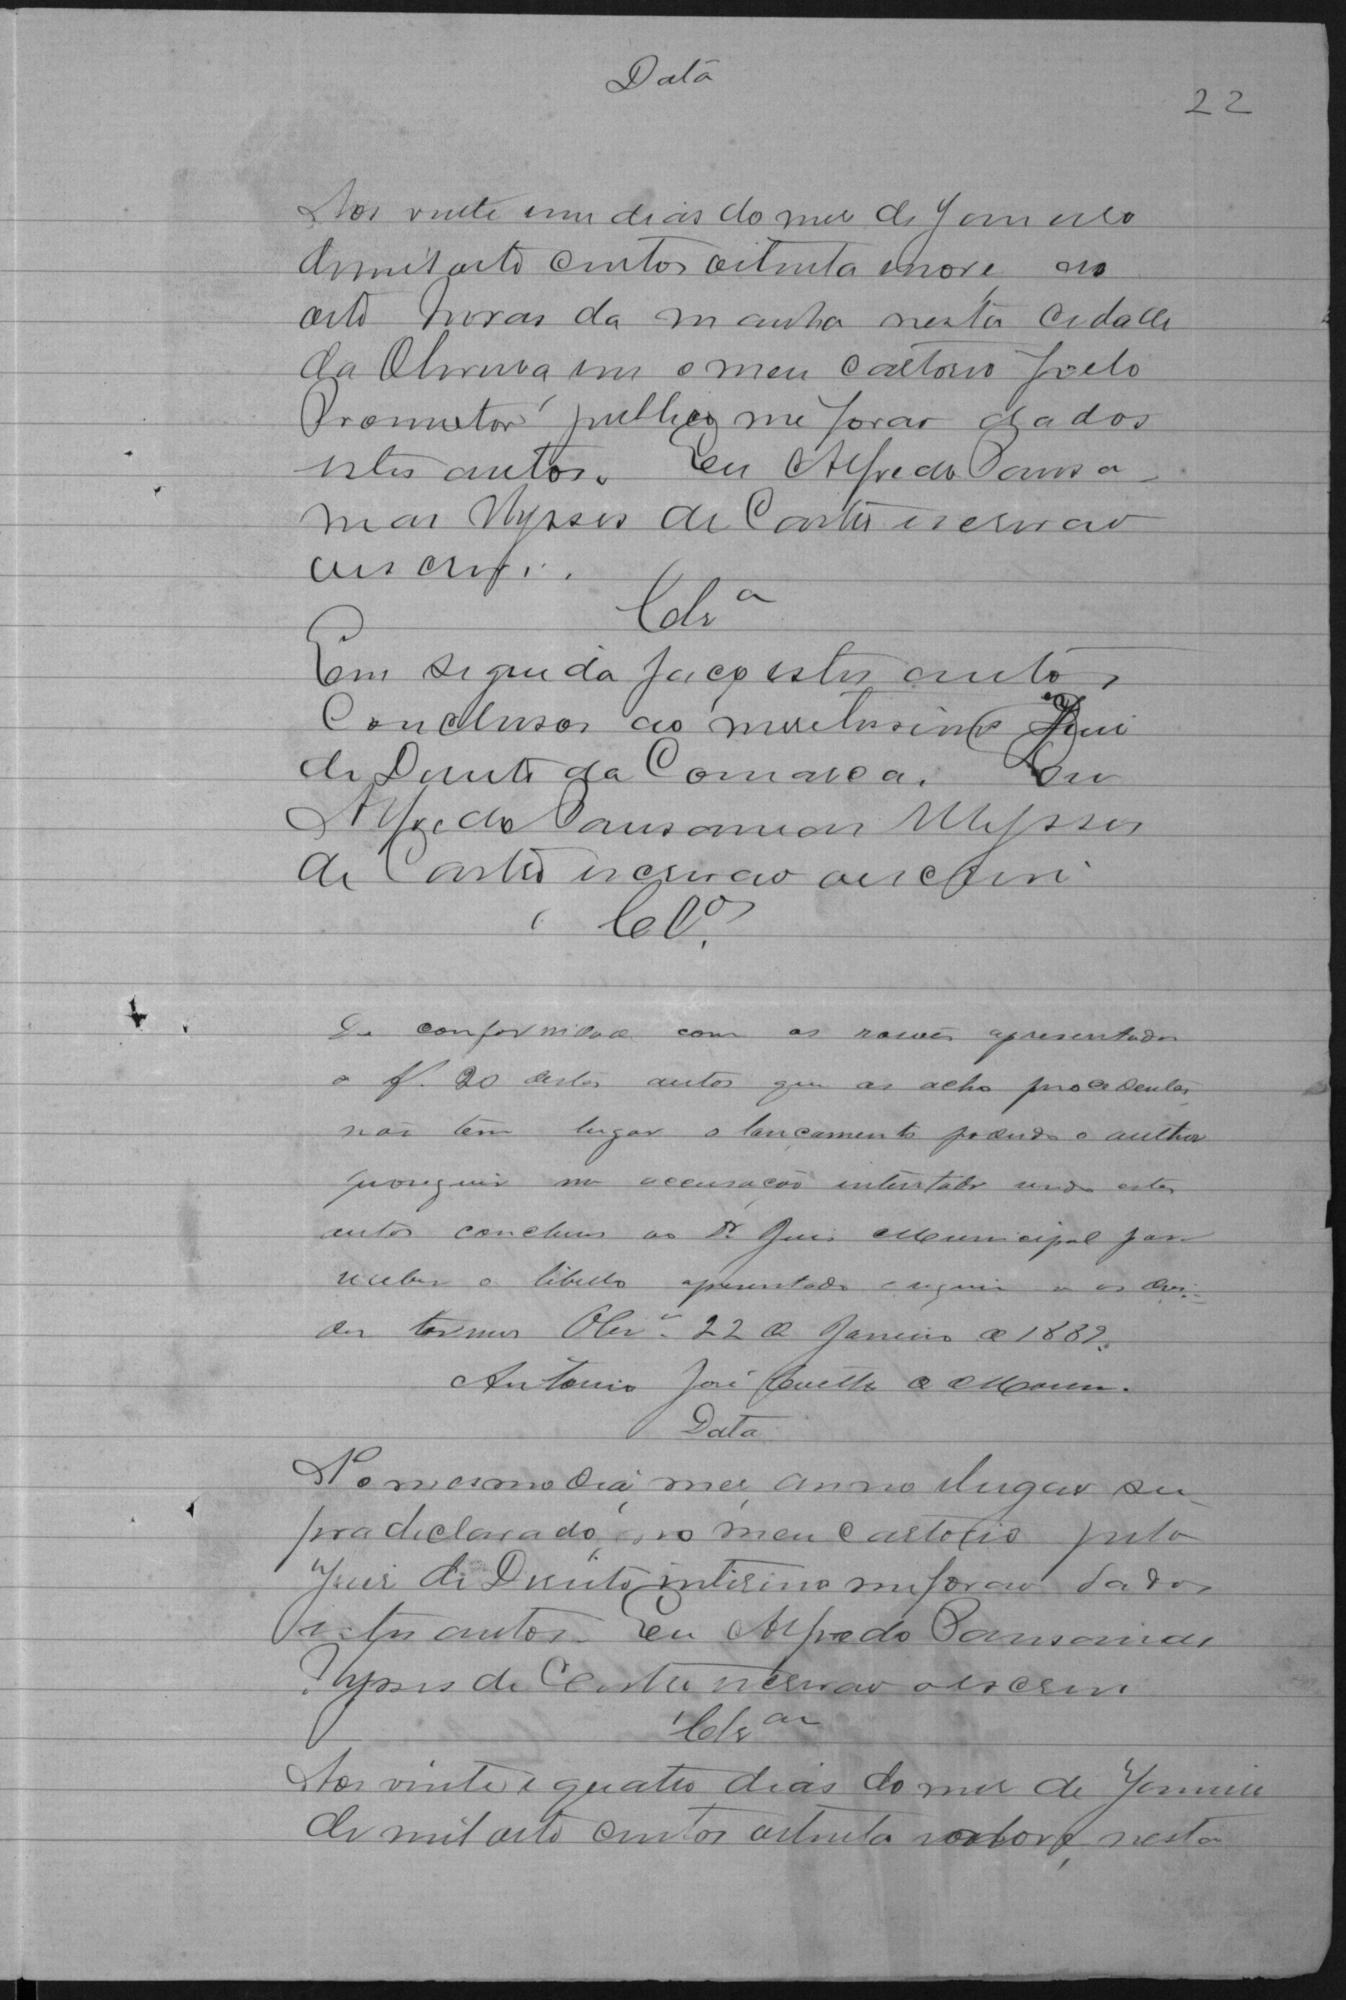 Data
22
Aos vinte um dias do mez de Janeiro
de mil oito centos oitenta e nove, as
oito horas da manha nesta cidade
da Oliveira em o meu cartorio pelo
Promotor publico me forao dados
estes autos. Eu Alfredo Pausa-
nias Ulysses de Castro escrivao
o escrevi.
Cls.ª
Em seguida faço estes autos
Conclusos ao meritissimo Juiz
de Direito da Comarca. Eu
Alfredo Pausanias Ulysses
de Castro escrivao o escrevi
Cl.os
De conformidade com as rasões apresentadas
a f. 20 destes autos que as acho procedentes
não tem lugar o lançamento podendo o author
proseguir na accusação intentada sendo estes
autos conclusos ao Dr Juis Municipal para
receber o libello apresentado e seguir os devi-
dos termos Olivª. 22 de Janeiro de 1889.
Antonio José de
Data
No mesmo dia, mez, anno e lugar su-
pra declarado, no meu cartorio pelo
Juiz de Direito, interino me forao dados
estes autos. Eu Alfredo Pausanias
Ulysses de Castro escrivao o escrevi
Cls.ão
Aos vinte e quatro dias do mez de Janeiro
de mil oito centos oitenta nove, nesta